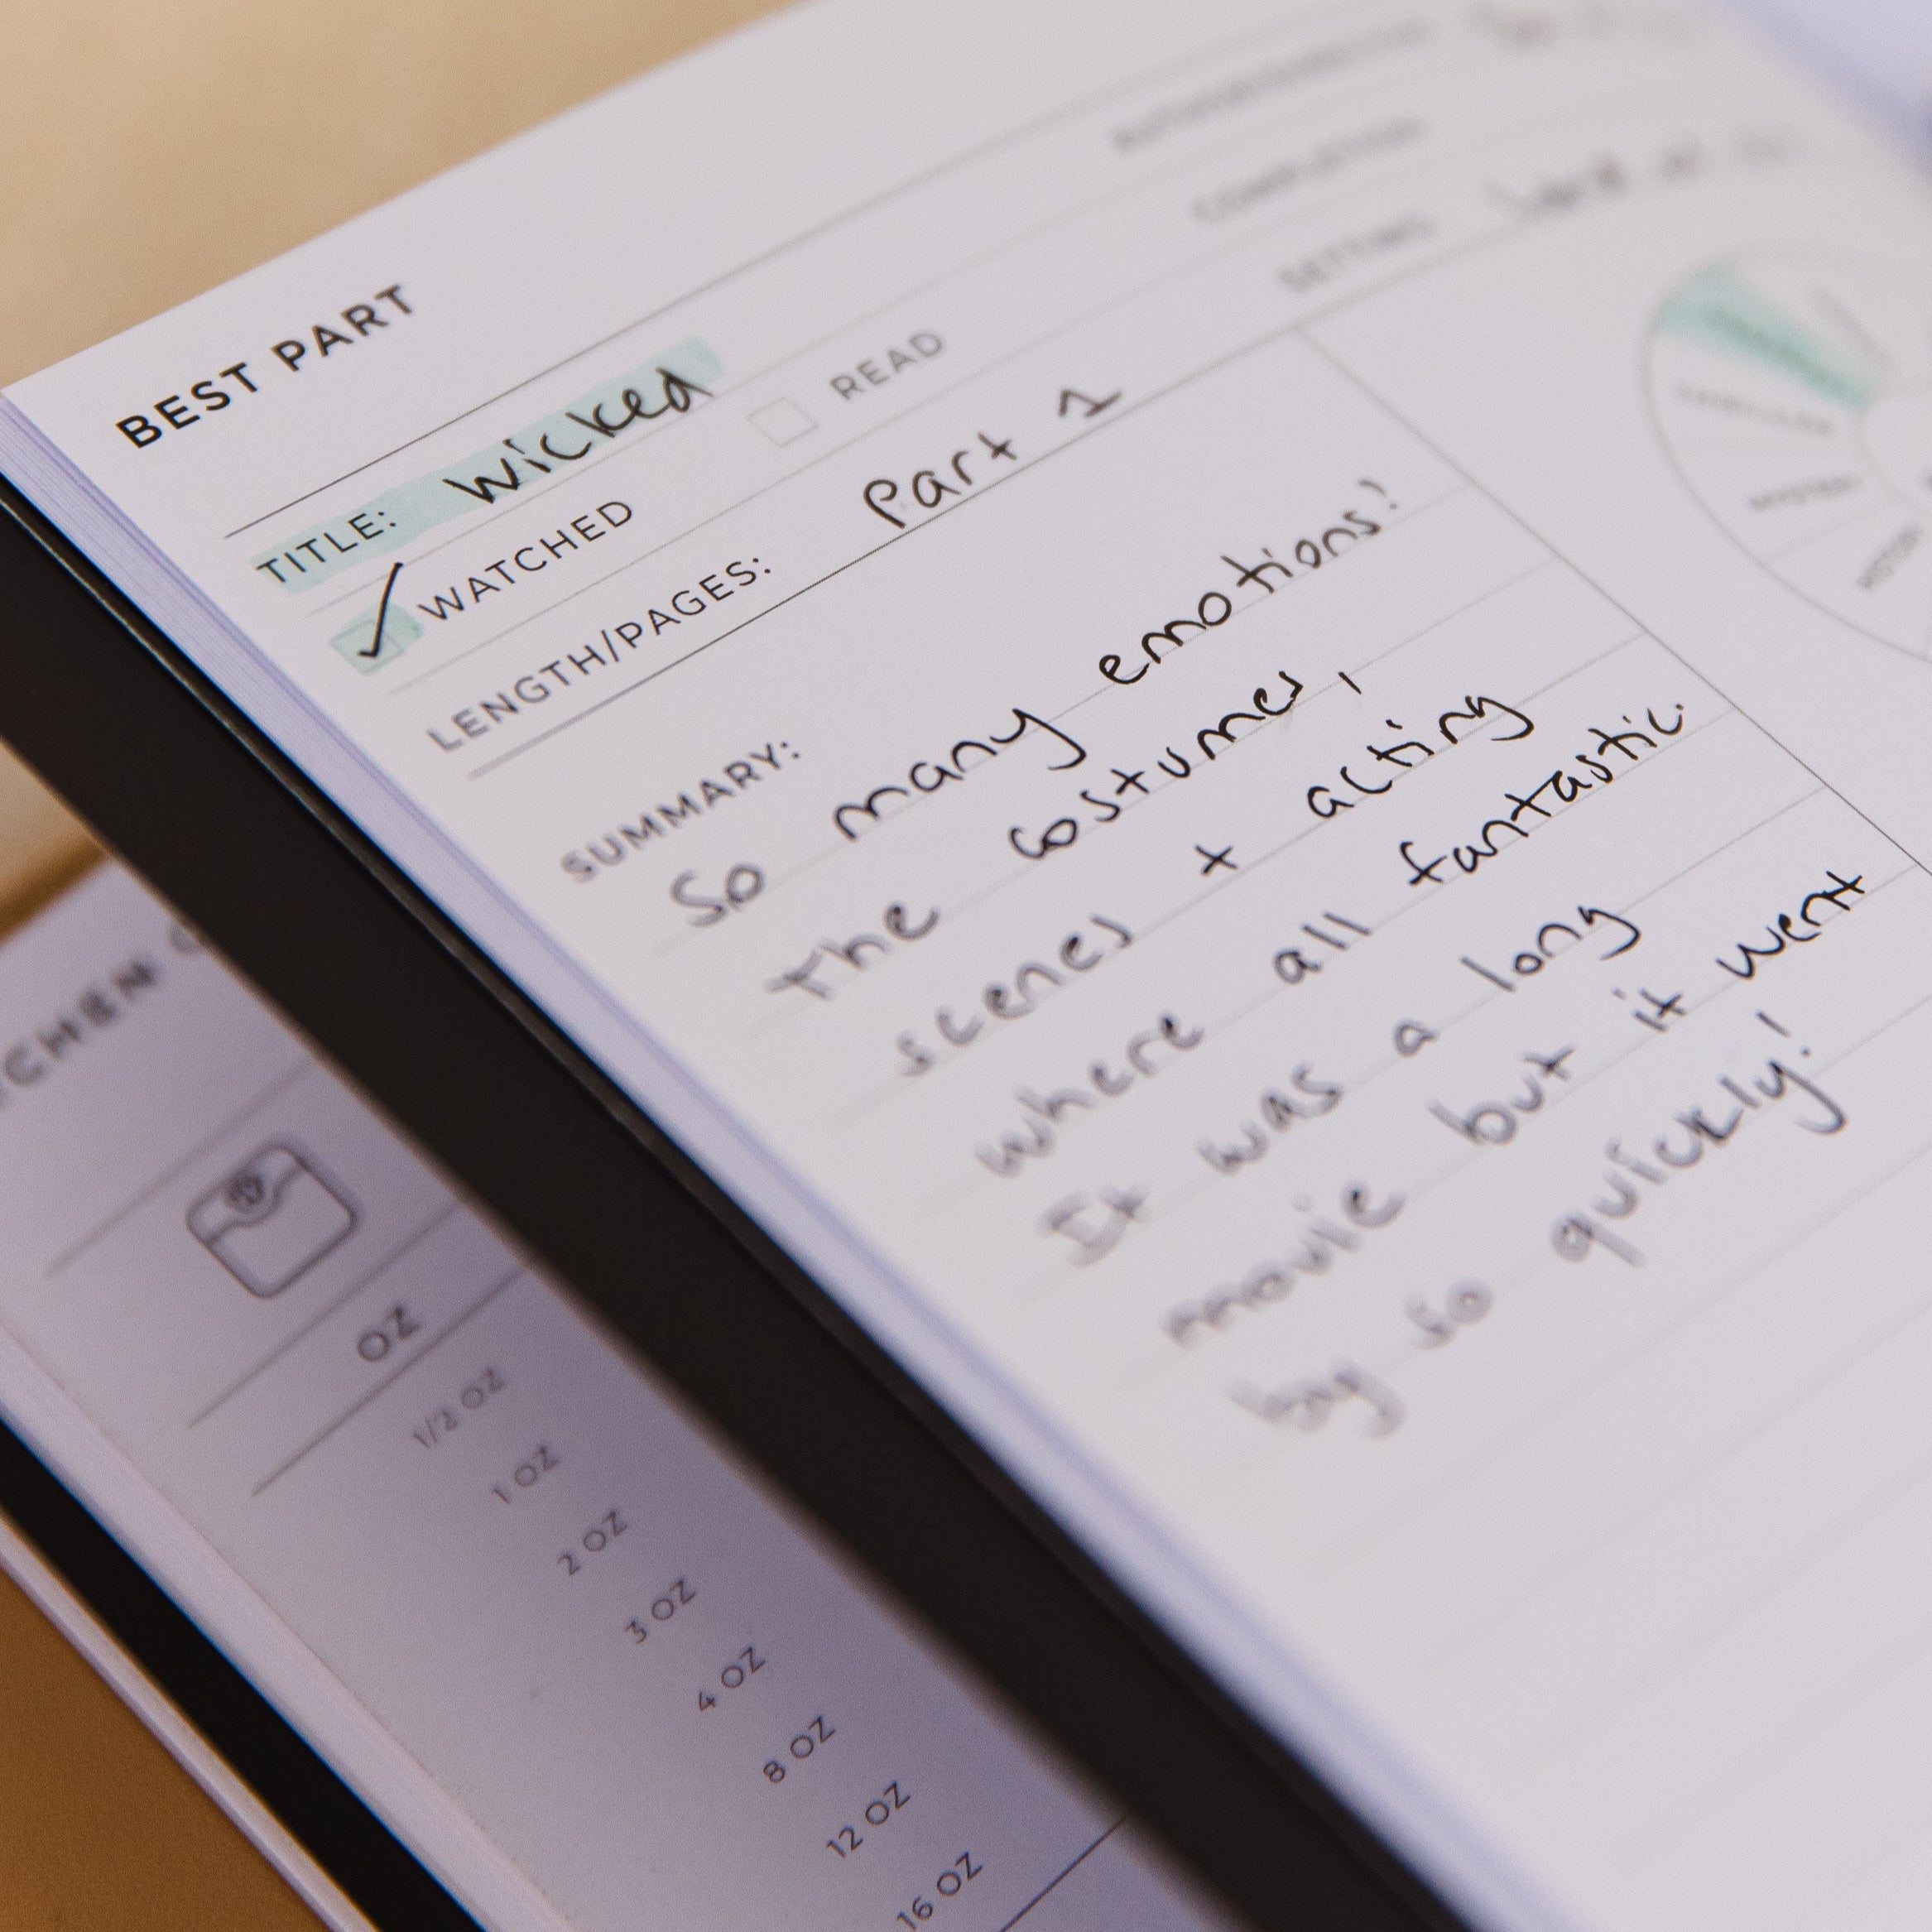 BEST PART
TITLE: Wicked
WATCHED READ
COMPLETION
LENGTH/PAGES: Part 1
SETTING
SUMMARY:
So many emotions!
The costumes,
scenes + acting
where all fantastic.
It was a long
movie but it went
by so quickly!
MYSTERY
OZ
1/2 OZ
1 OZ
2 OZ
3 OZ
4 OZ
8 OZ
12 OZ
16 OZ